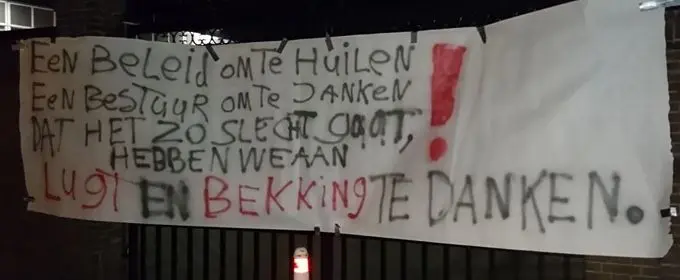 EEN BELEID OM TE HUILEN !
EEN BESTUUR OM TE JANKEN
DAT HET ZO SLECHT GAAT,
HEBBEN WE AAN
LUGT EN BEKKING TE DANKEN.